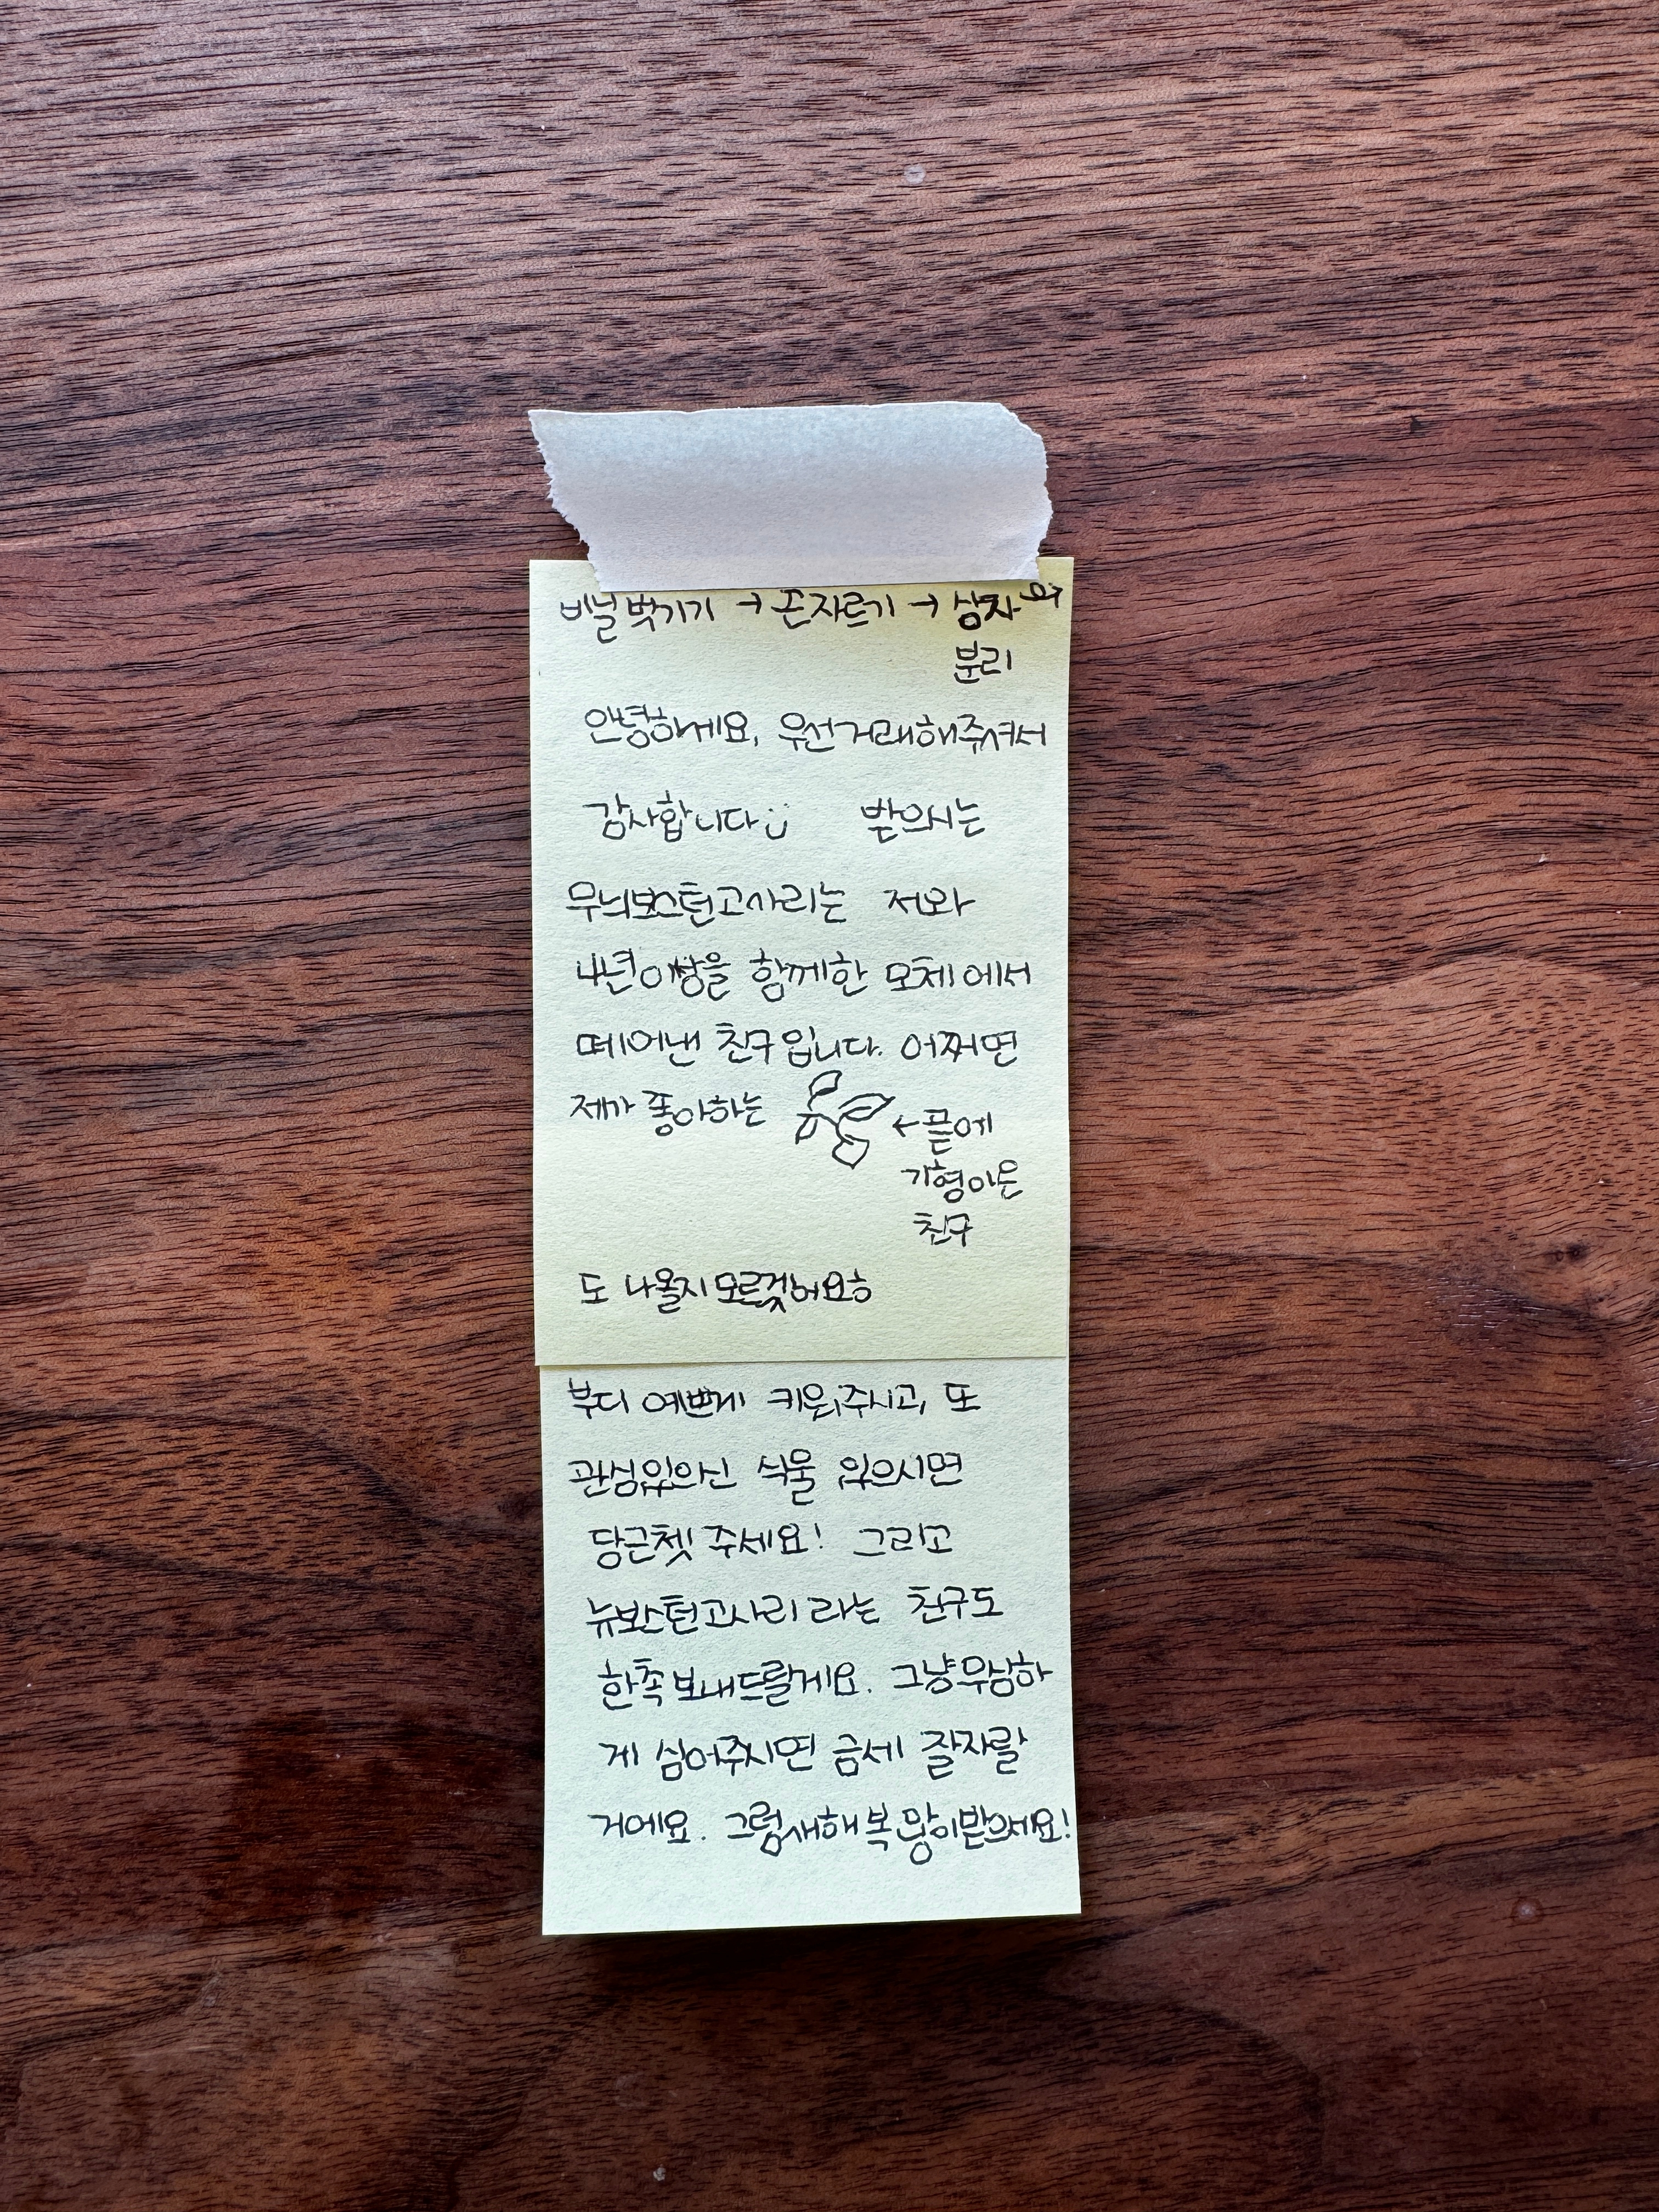 비닐 벗기기 → 끈자르기 → 상자
분리
안녕하세요, 우선거래해주셔서
감사합니다:) 받으시는
무늬보스턴고사리는 저와
4년이상을 함께한 모체에서
떼어낸 친구입니다. 어쩌면
제가 좋아하는 ←끝에
기형이온
친구
도 나올지모르겠어요ㅎ
부디 예쁘게 키워주시고, 또
관심있으신 식물 있으시면
당근챗 주세요! 그리고
뉴보스턴고사리라는 친구도
한촉보내드릴게요. 그냥무심하
게 심어주시면 금세 잘자랄
거에요. 그럼새해복많이받으세요!